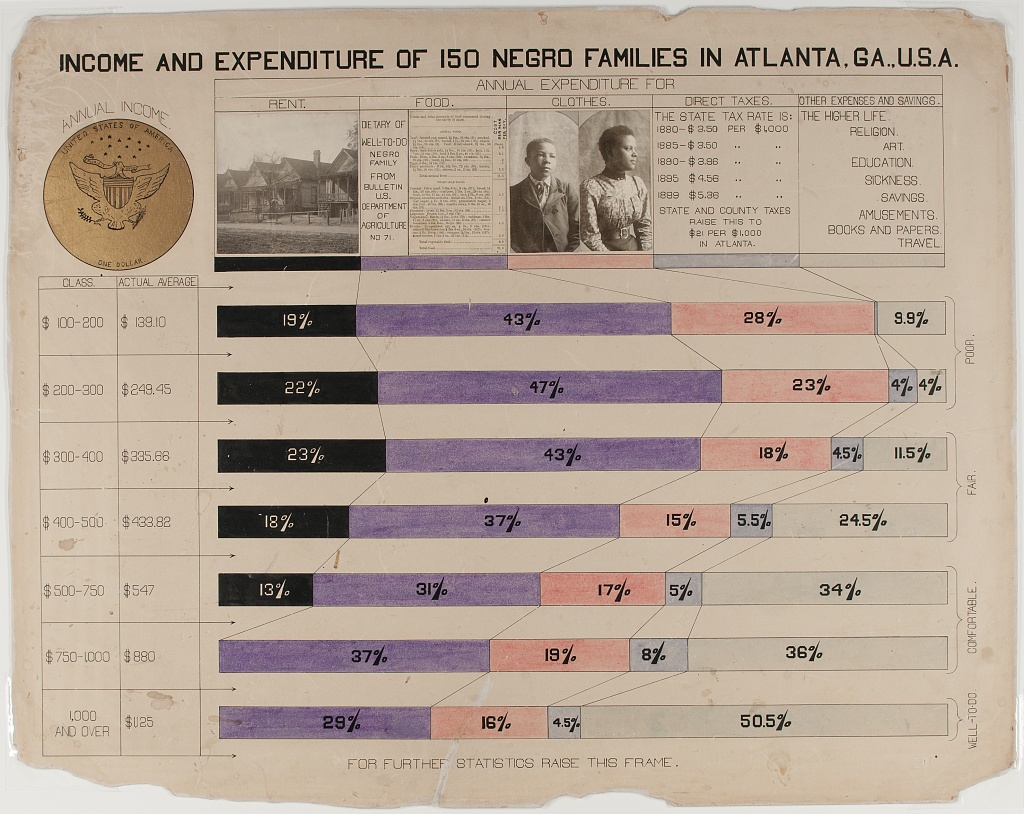 INCOME AND EXPENDITURE OF 150 NEGRO FAMILIES IN ATLANTA, GA., U.S.A.
ANNUAL INCOME.
UNITED STATES OF AMERICA
ONE DOLLAR
ANNUAL EXPENDITURE FOR
RENT. FOOD. CLOTHES. DIRECT TAXES. OTHER EXPENSES AND SAVINGS.
DIETARY OF
WELL-TO-DO
NEGRO
FAMILY
FROM
BULLETIN
U.S.
DEPARTMENT
OF
AGRICULTURE
NO 71.
THE STATE TAX RATE IS:
1880-$ 3.50 PER $1,000
1885-$ 3.50 " "
1890-$ 3.86 " "
1895 $ 4.56 " "
1899 $ 5.36 " "
STATE AND COUNTY TAXES
RAISE THIS TO
$21 PER $1,000
IN ATLANTA.
THE HIGHER LIFE.
RELIGION.
ART.
EDUCATION.
SICKNESS.
SAVINGS.
AMUSEMENTS.
BOOKS AND PAPERS.
TRAVEL.
CLASS. ACTUAL AVERAGE
$ 100-200 $ 139.10 19% 43% 28% 9.9%
$ 200-300 $249.45 22% 47% 23% 4% 4%
POOR.
$ 300-400 $335.66 23% 43% 18% 4.5% 11.5%
$ 400-500 $433.82 18% 37% 15% 5.5% 24.5%
FAIR.
$ 500-750 $547 13% 31% 17% 5% 34%
$ 750-1,000 $880 37% 19% 8% 36%
COMFORTABLE.
1,000
AND OVER $1,125 29% 16% 4.5% 50.5%
WELL-TO-DO.
FOR FURTHER STATISTICS RAISE THIS FRAME.